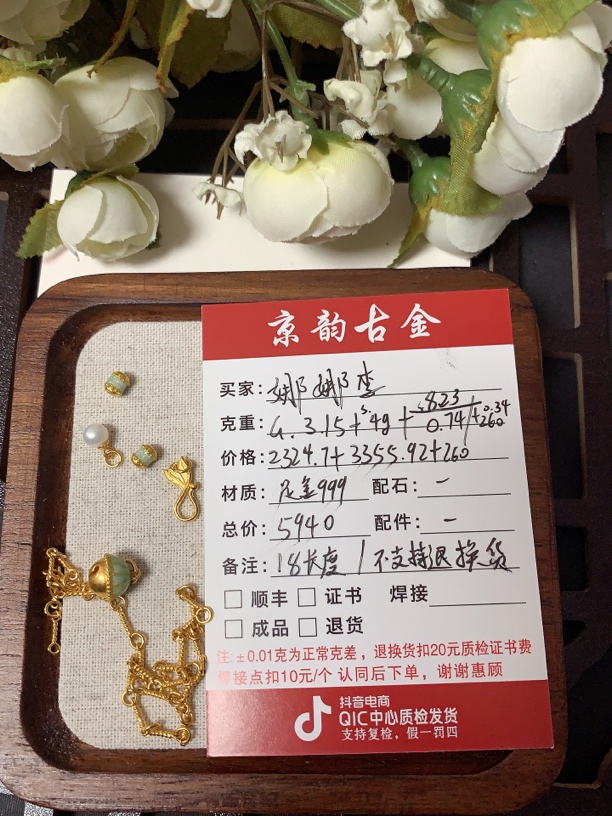 京韵古金
买家: 娜娜李
克重: G. 3.15+5.49+.823
0.74/+0.34
260
价格: 2324.7+3355.92+260
材质: 足金999 配石: -
总价: 5940 配件: -
备注: 18长度/不支持退换货
□ 顺丰 □ 证书 焊接
□ 成品 □ 退货
注: ±0.01克为正常克差，退换货扣20元质检证书费
焊接点扣10元/个 认同后下单，谢谢惠顾
抖音电商
QIC中心质检发货
支持复检，假一罚四